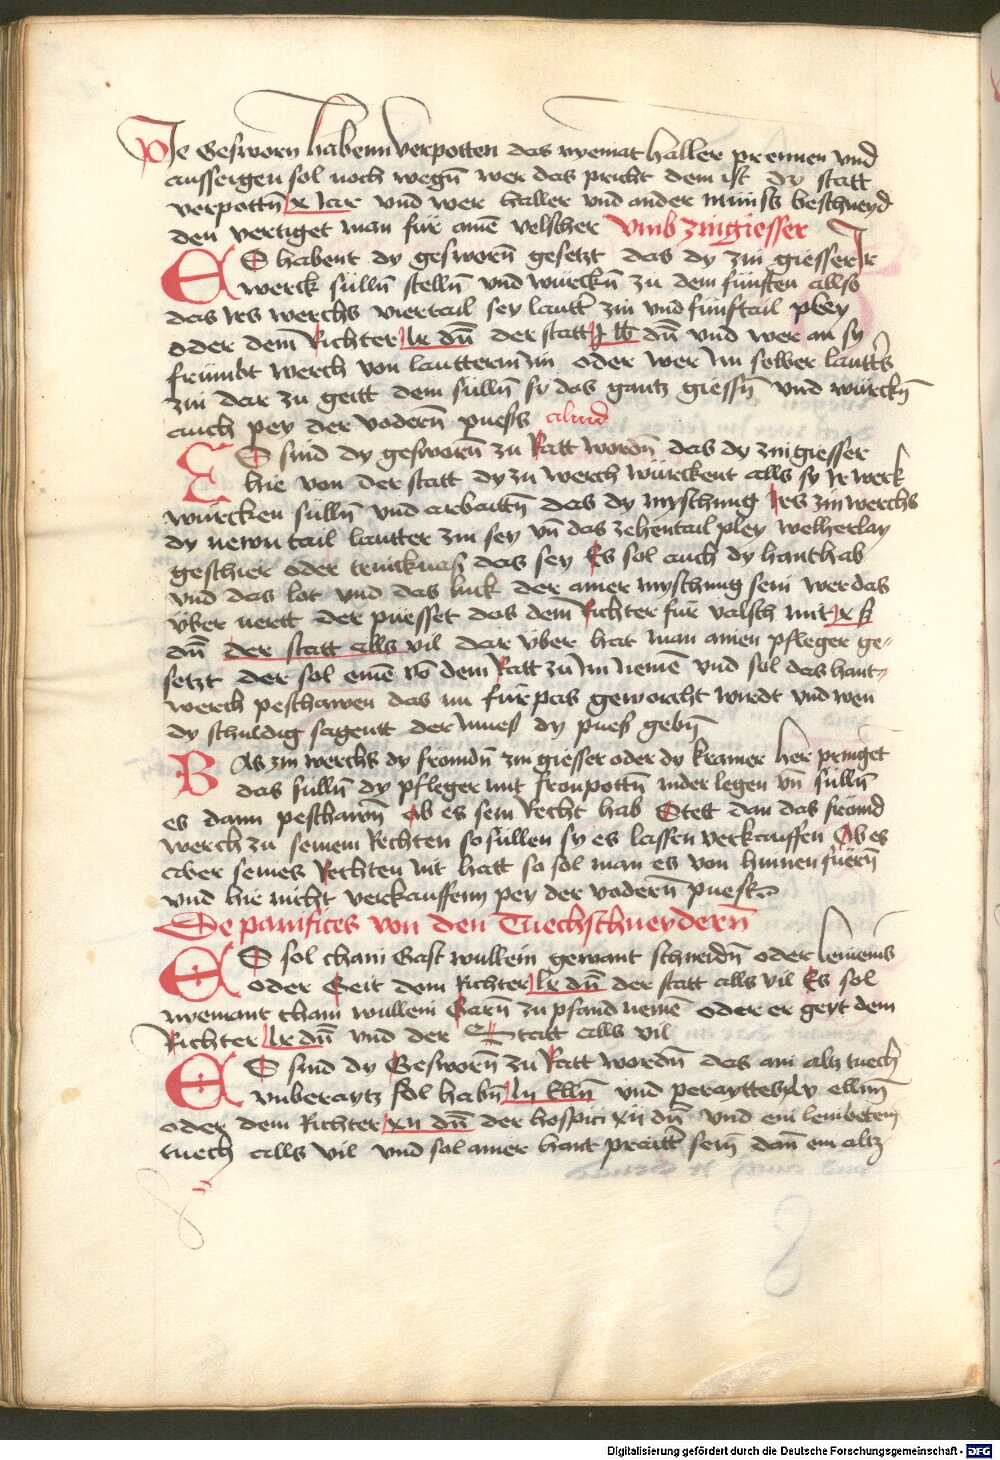 Die Gesworn habenn verpotten das nyemat haller prennen vnd
aussseigen sol noch wegn̄ wer das pricht dem ist dy statt
verpottn̄ x Iar vnd wer haller vnd ander münss beschneyd
den vertiget man für ainē velscher Vmb zingiesser
ES habent dy gesworn̄ gesetzt das dy zin giesser Ir
werck sülln̄ stelln̄ vnd würckn̄ zu dem fünften allso
das irs werchs viertail sey lautt̄ zin vnd fünftail pley
oder dem Richter lx dn̄ der statt j lb dn̄ vnd wer an sy
frümbt werch von lautterm zin oder wer im solher lautt̄s
zin dar zu geitt dem sülln̄ sy das gantz giessn̄ vnd würckn̄
auch pey der vodern̄ puess aliud
ES sind dy gesworn̄ zu Ratt wordn̄ das dy zingiesser
hie von der statt dy zu werch würckent alls sy ir werk
würcken sülln̄ vnd arbaittn̄ das dy myschung irs zin werchs
dy newn tail lautter zin sey vn̄ das zehentail pley welherlay
geschier oder trinckuas das sey Es sol auch dy hanthab
vnd das lot vnd das luck der ainer myschung sein wer das
über uertt der puesset das dem Richter für valsch mit x ß
dn̄ der statt alls vil dar über hat man ainen pfleger ge-
setzt der sol ainē vō dem Ratt zu im nemē vnd sol das hant-
werch peschawen das im fürpas geworcht wirdt vnd wen
dy schuldig sagentt der mues dy pues gebn̄
WAs zin werchs dy frömdn̄ zin giesser oder dy kramer her pringet
das sülln̄ dy pfleger mit fronpottn̄ nider legen vn̄ sülln̄
es dann peschawn̄ Ob es sein Recht hab Stett dan das frömd
werch zu seinem Rechten so süllen sy es lassen verkauffen Ob es
aber seines Rechten nit hatt so sol man es von hinnen fuern̄
vnd hie nicht verkauffenn pey der vodern̄ puess
De panifices von den Tuechschneydern̄
ES sol chain Gast wullein gewant schneidn̄ oder leineins
oder Geit dem Richter lx dn̄ der statt alls vil Es sol
nyemant chain wullein Garn̄ zu pfand nemē oder er geyt dem
Richter lx dn̄ vnd der Statt alls vil
ES sind dy Gesworn̄ zu Ratt wordn̄ das ain altz tuech
vnberaytz sol habn̄ lij Elln̄ vnd perayttes xlv ellnn̄
oder dem Richter xij dn̄ der hospici xij dn̄ vnd ein lembeten
tuech alls vil vnd sol ainer hant praitt̄ sein dan̄ ein altz
Digitalisierung gefördert durch die Deutsche Forschungsgemeinschaft - DFG